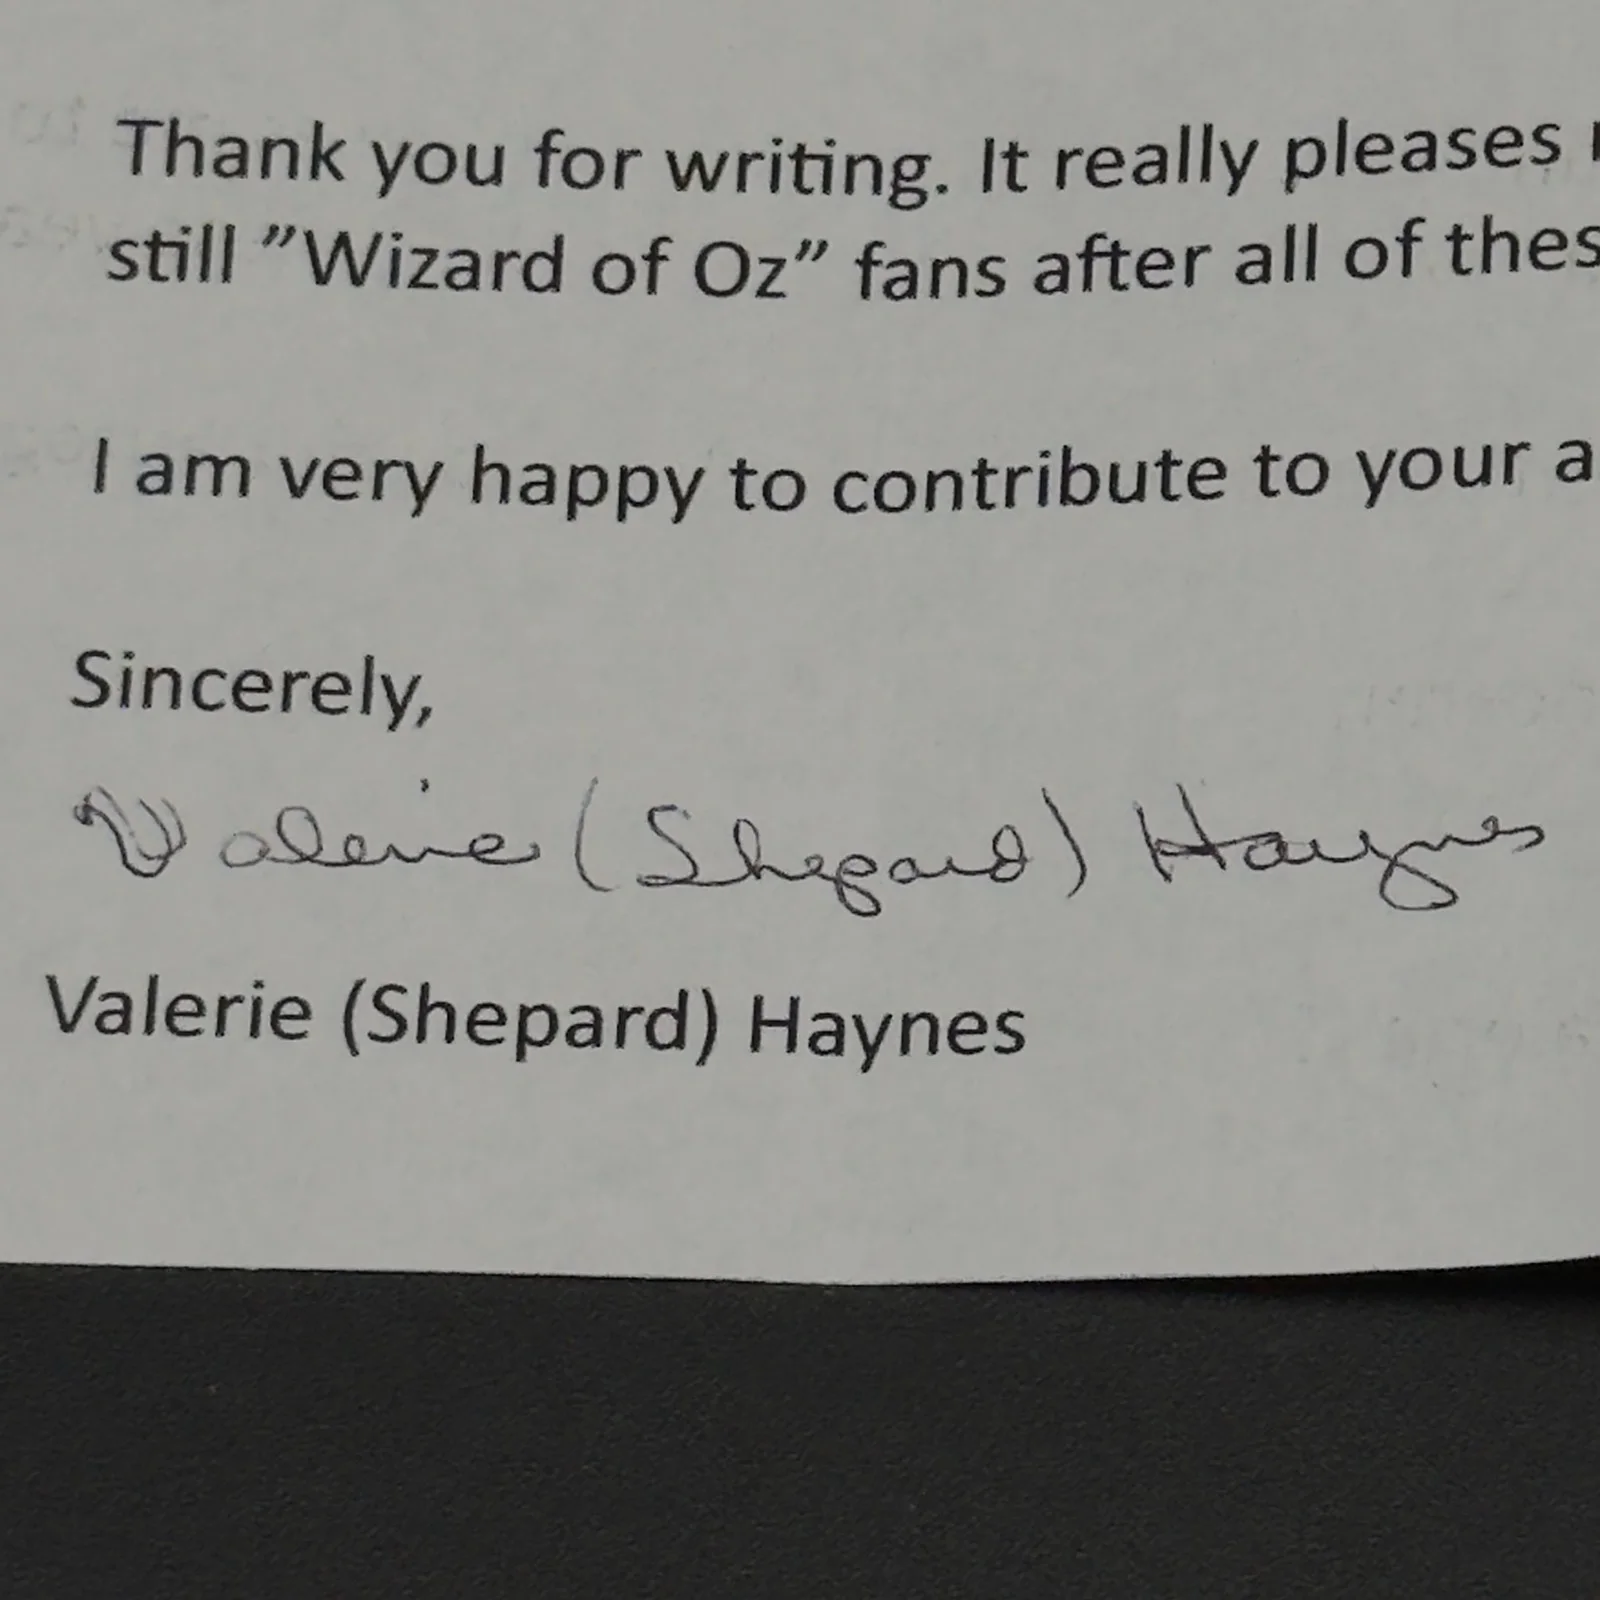 Thank you for writing. It really pleases
still ”Wizard of Oz” fans after all of thes
I am very happy to contribute to your a
Sincerely,
Valerie (Shepard) Haynes
Valerie (Shepard) Haynes